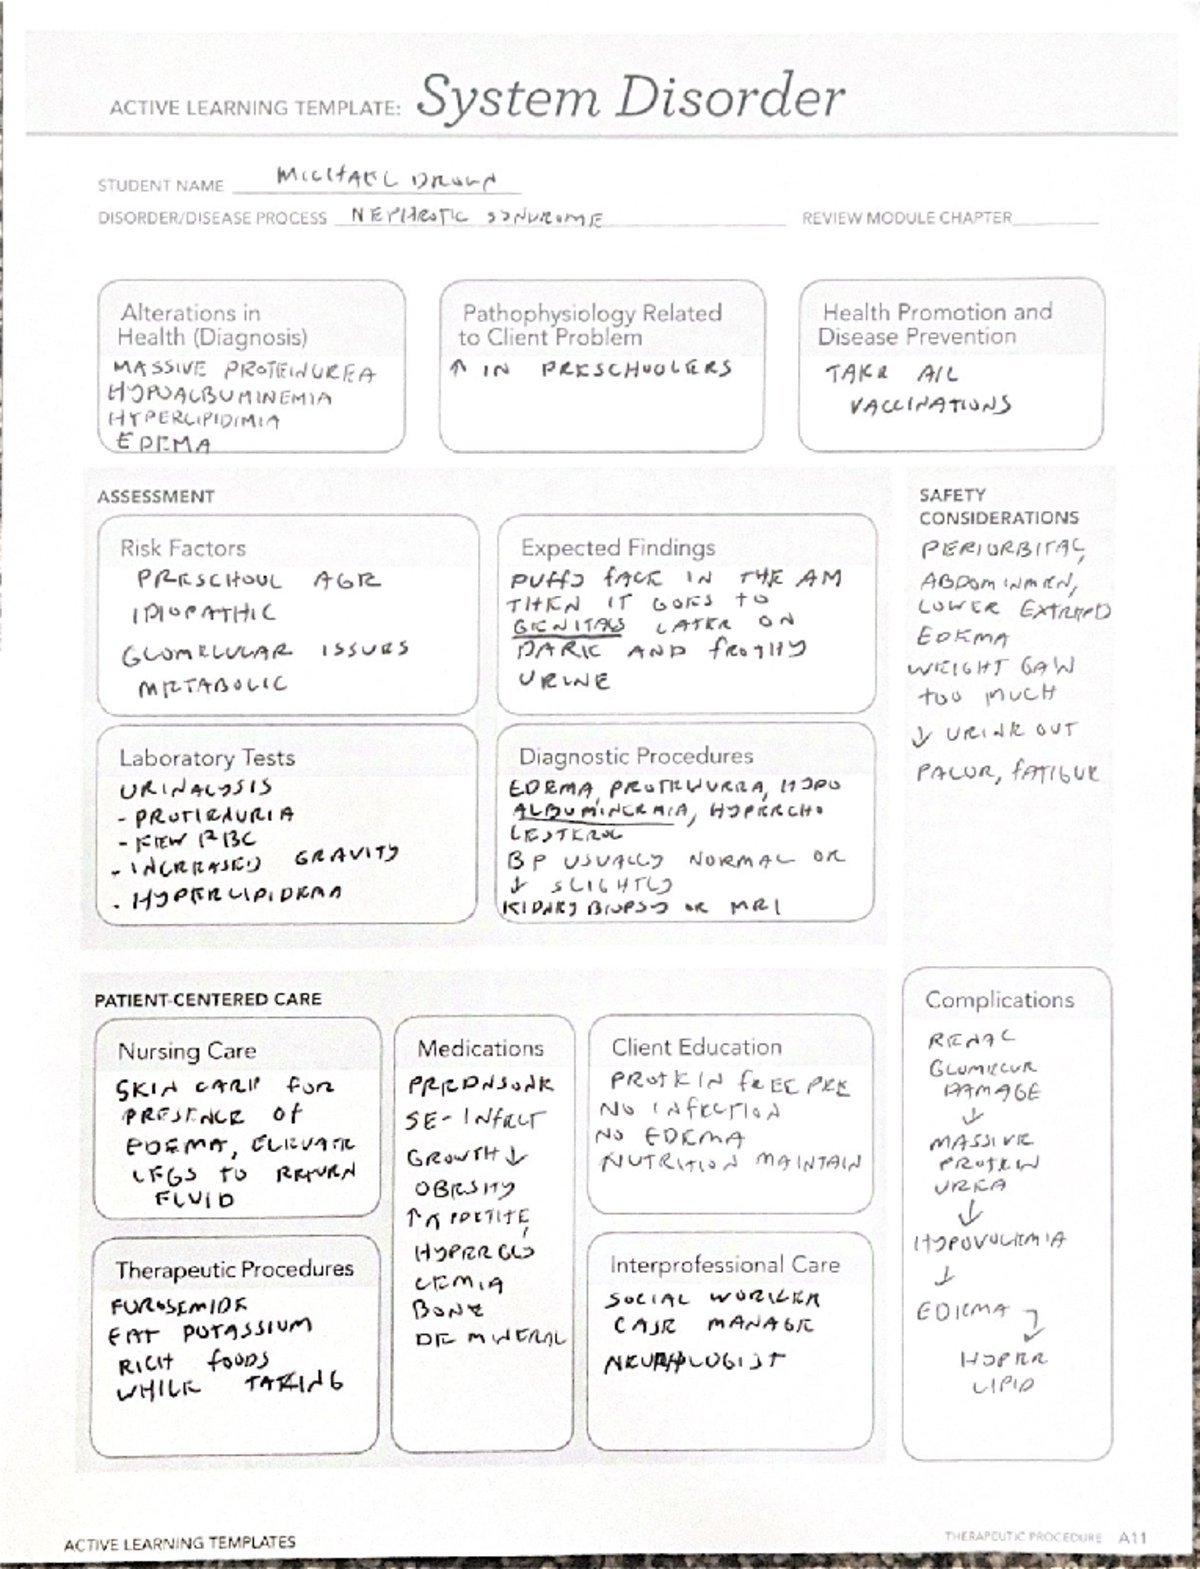 ACTIVE LEARNING TEMPLATE: System Disorder
STUDENT NAME MICHAEL BROWN
DISORDER/DISEASE PROCESS NEPHROTIC SYNDROME REVIEW MODULE CHAPTER
Alterations in
Health (Diagnosis)
MASSIVE PROTEINUREA
HYPOALBUMINEMIA
HYPERLIPIDIMIA
EDEMA
Pathophysiology Related
to Client Problem
↑ IN PRESCHOOLERS
Health Promotion and
Disease Prevention
TAKE ALL
VACCINATIONS
ASSESSMENT
Risk Factors
PRESCHOOL AGE
IDIOPATHIC
GLOMELULAR ISSUES
METABOLIC
Expected Findings
PUFFY FACE IN THE AM
THEN IT GOES TO
GENITALS LATER ON
DARK AND FROTHY
URINE
Laboratory Tests
URINALYSIS
- PROTIENURIA
- FEW RBC
- INCREASED GRAVITY
- HYPERLIPIDEMA
Diagnostic Procedures
EDEMA, PROTEINURRA, HYPO
ALBUMINEMIA, HYPERCHO
LESTEROL
BP USUALLY NORMAL OR
↓ SLIGHTLY
KIDNEY BIOPSY OR MRI
SAFETY
CONSIDERATIONS
PERIORBITAL,
ABDOMINMEN,
LOWER
EDEMA
WEIGHT GAIN
TOO MUCH
↓ URINE OUT
PALOR, FATIGUE
PATIENT-CENTERED CARE
Nursing Care
SKIN CARE FOR
PRESENCE OF
EDEMA, ELEVATE
LEGS TO RETURN
FLUID
Medications
PREDNSONE
SE- INFECT
GROWTH ↓
OBESITY
↑ APPETITE,
HYPERGLY
CEMIA
BONE
DE MINERAL
Client Education
PROTEIN FREE PEE
NO INFECTION
NO EDEMA
NUTRITION MAINTAIN
Therapeutic Procedures
FUROSEMIDE
EAT POTASSIUM
RICH FOODS
WHILE TAKING
Interprofessional Care
SOCIAL WORKER
CASE MANAGE
Complications
RENAL
GLOMELUR
DAMAGE
↓
MASSIVE
PROTEIN
UREA
↓
HYPOVOLEMIA
↓
EDEMA
HYPER
LIPID
ACTIVE LEARNING TEMPLATES
THERAPEUTIC PROCEDURE A11